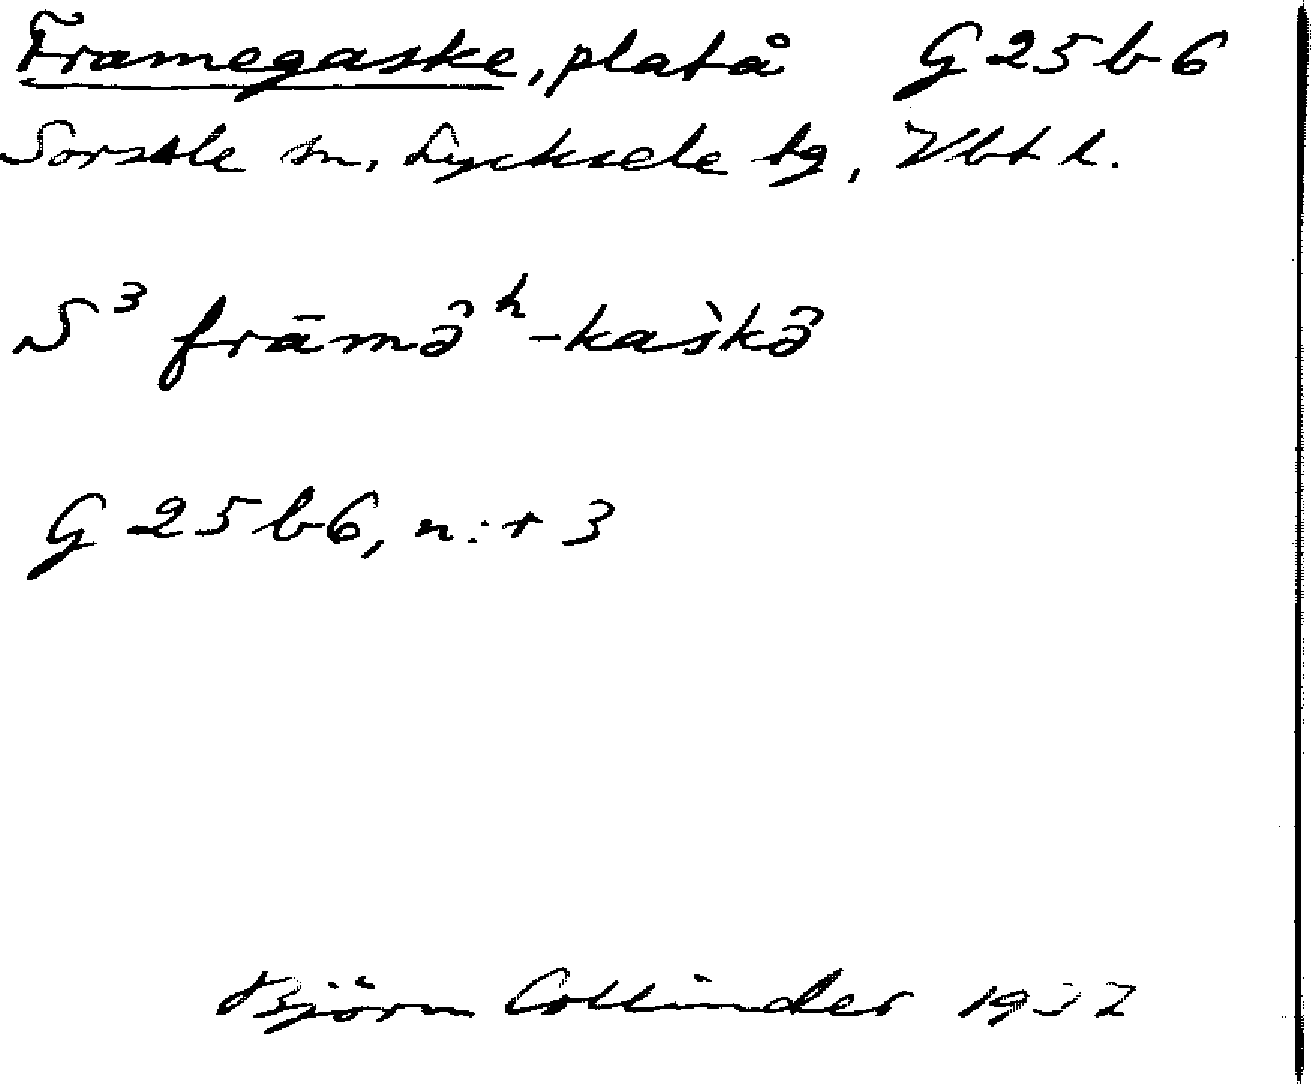 Framegaske, platå G25b6
Sorsele sn, Lycksele lg, Vbt l.
S³ frāmə̑ʰ-kaš̀kə̑
G25b6, n:r 3
Björn Collinder 1937